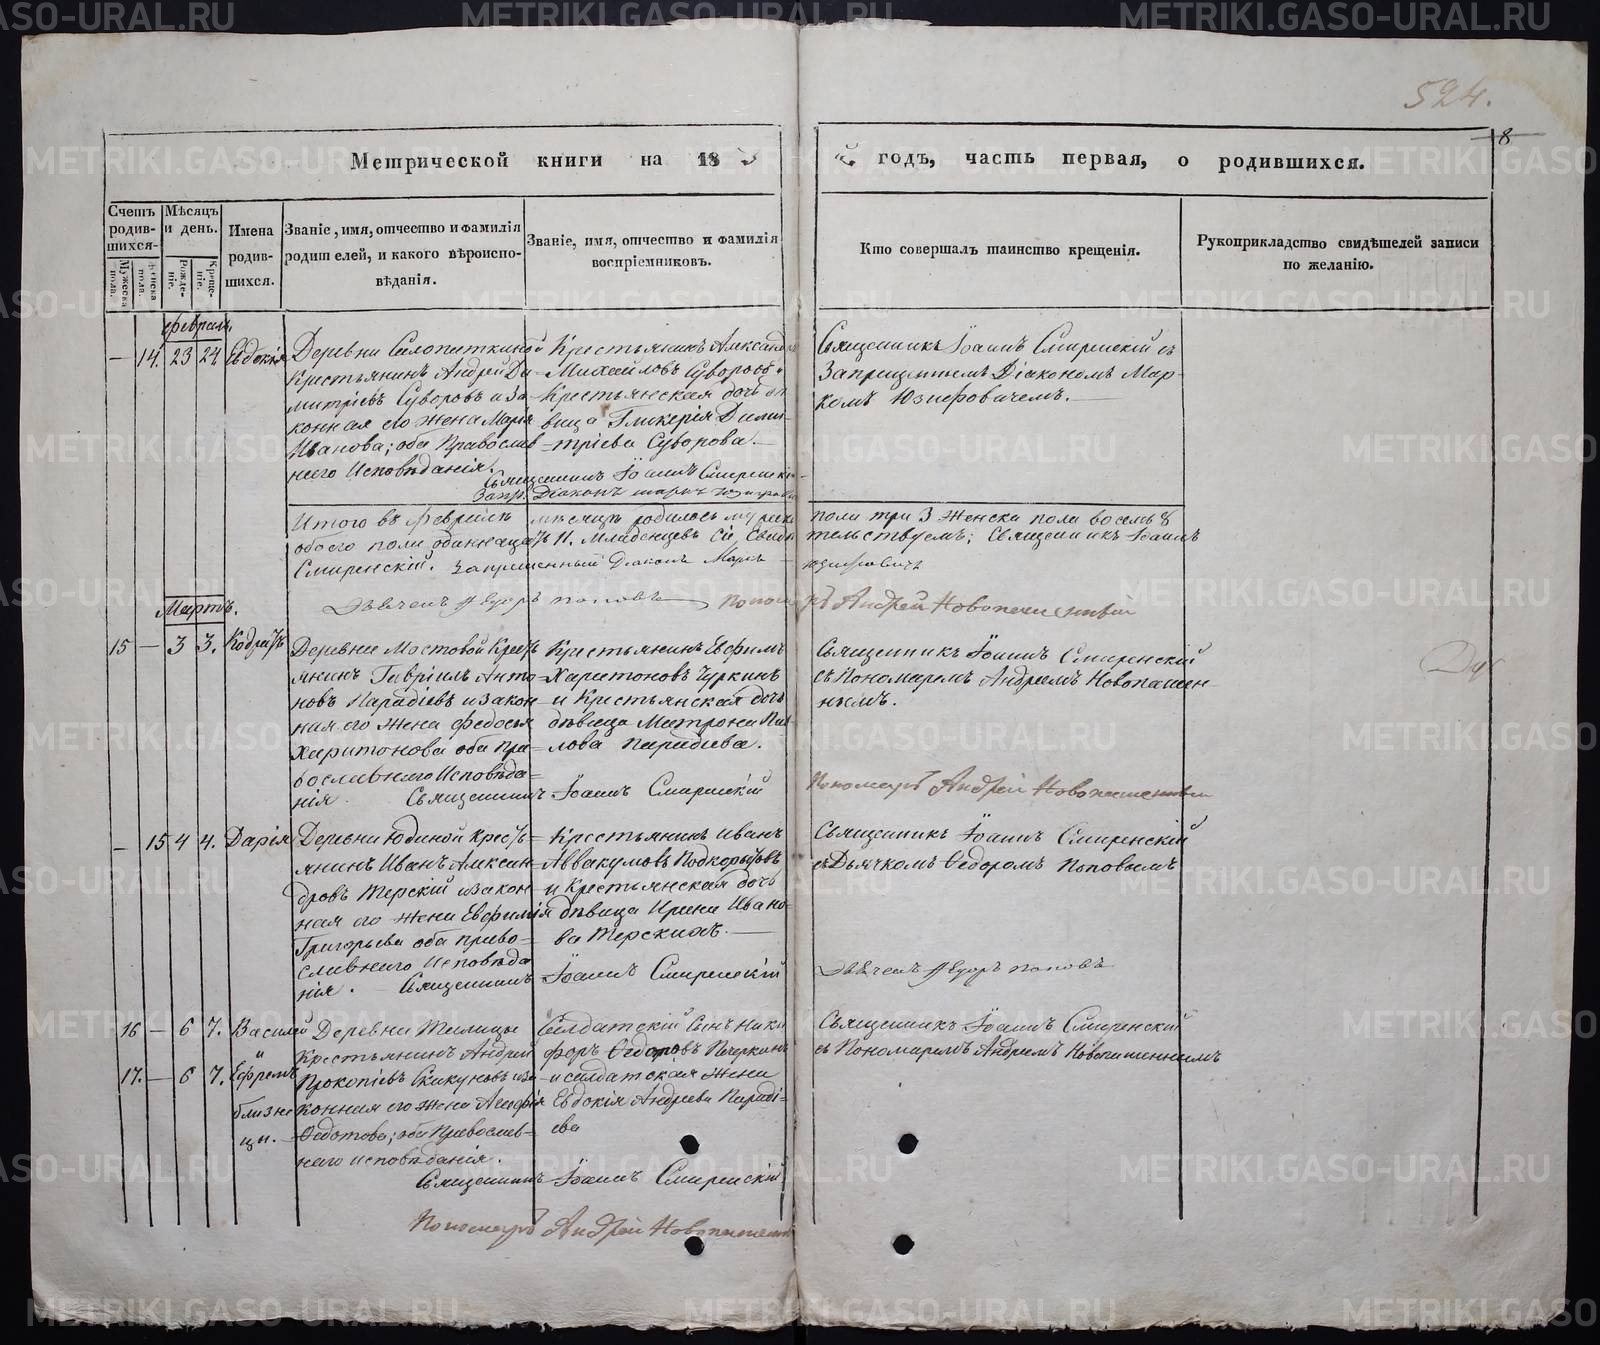 524.
8
Метрической книги на 18
годъ, часть первая, о родившихся.
Счетъ родив-шихся.
Мѣсяцъ и день.
Имена родив-шихся.
Званіе, имя, отчество и фамилія родителей, и какого вѣроиспо-вѣданія.
Званіе, имя, отчество и фамилія воспріемниковъ.
Кто совершалъ таинство крещенія.
Рукоприкладство свидѣтелей записи по желанію.
Мужеска пола.
Женска пола.
Рожде-ніе.
Креще-ніе.
Февраль
— 14. 23 24 Евдокія
Деревни
Крестьянинъ Андрей Ди-
митріевъ Суворовъ и за-
конная его жена Марія
Иванова; оба Православ-
наго Исповѣданія.
Крестьянинъ Александръ
Михайловъ Суворовъ и
Крестьянская дочь дѣ-
вица Гликерія Дими-
тріева Суворова.—
Священникъ Іоаннъ Смиренскій съ
Запрещеннымъ Діакономъ Мар-
комъ Юзефовичемъ.—
Священникъ Іоаннъ Смиренскій
Запр. Діаконъ Маркъ
Итого въ Февралѣ мѣсяцѣ родилось мужска пола три 3 женска пола восемь 8
обоего пола одиннадцать 11. Младенцевъ Сіе свидѣтельствуемъ; Священникъ Іоаннъ
Смиренскій. Запрещенный Діаконъ Маркъ Юзифовичь
Дьячекъ Ѳедоръ Поповъ — Пономарь Андрей Новопашенный
Мартъ.
15 — 3 3. Кодратъ
Деревни Мостовой Кресть-
янинъ Гавріилъ Анто-
новъ Парадіевъ и закон-
ная его жена Федосья
Харитонова оба Пра-
вославнаго Исповѣда-
нія.
Крестьянинъ Евфимъ
Харитоновъ Чуркинъ
и Крестьянская дочь
дѣвица Матрона Пав-
лова Парадіева.
Священникъ Іоаннъ Смиренскій
съ Пономаремъ Андреемъ Новопашен-
нымъ.
Священникъ Іоаннъ Смиренскій
Пономарь Андрей Новопашенный
— 15 4 4. Дарія
Деревни Юдиной Кресть-
янинъ Иванъ Алексан-
дровъ Терскій и закон-
ная его жена Евфимія
Григорьева оба право-
славнаго Исповѣда-
нія.
Крестьянинъ Иванъ
Аввакумовъ Подкорытовъ
и Крестьянская дочь
дѣвица Ирина Ивано-
ва Терскихъ.—
Священникъ Іоаннъ Смиренскій
съ Дьячкомъ Ѳедоромъ Поповымъ
Священникъ Іоаннъ Смиренскій
Дьячекъ Ѳедоръ Поповъ
16 — 6 7. Василій
и
17. — 6 7. Ефремъ
близне-
цы.
Деревни
Крестьянинъ Андрей
Прокопіевъ Скакуновъ и за-
конная его жена
Ѳедотова; оба Православ-
наго исповѣданія.
Солдатскій сынъ Ники-
форъ Ѳедоровъ Печеркинъ
и солдатская жена
Евдокія Андреева Параді-
ева
Священникъ Іоаннъ Смиренскій
съ Пономаремъ Андреемъ Новопашеннымъ
Священникъ Іоаннъ Смиренскій
Пономарь Андрей Новопашенный
METRIKI.GASO-URAL.RU